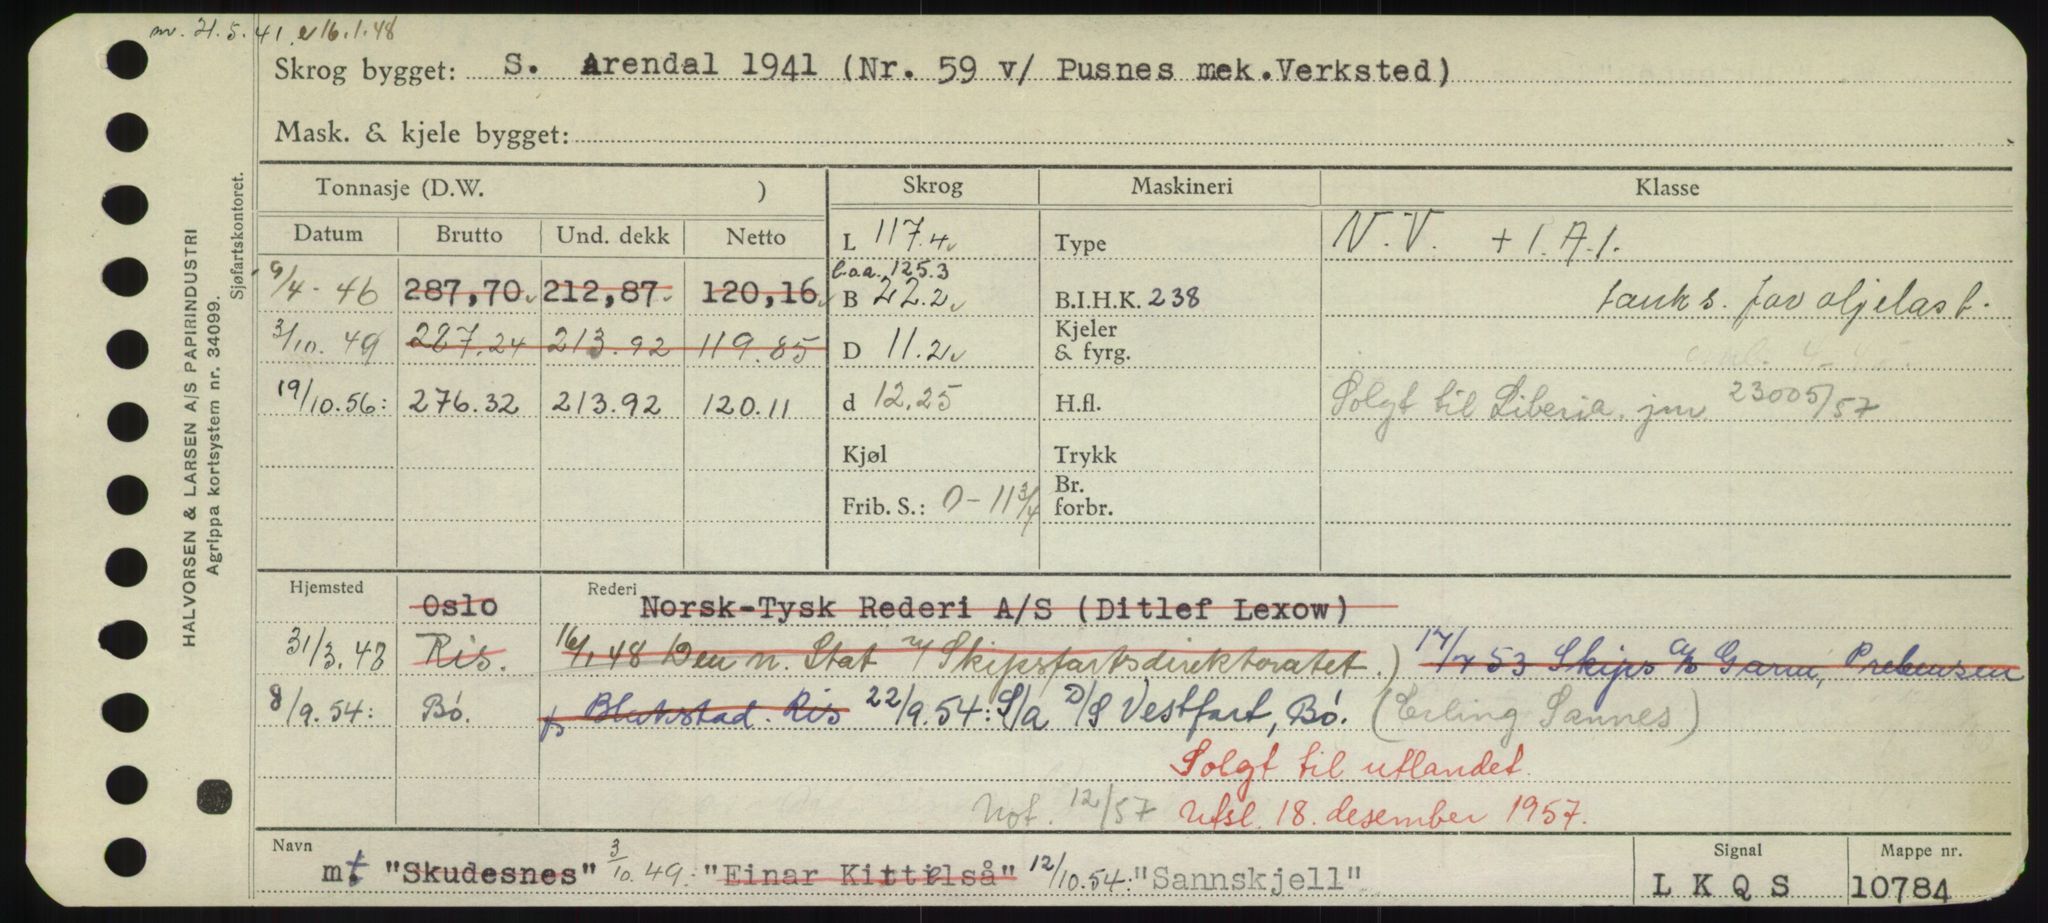 nv. 21.5.41. e 16.1.48
Skrog bygget: S. Arendal 1941 (Nr. 59 v/ Pusnes mek.Verksted)
Mask. & kjele bygget:
Tonnasje (D.W. ) Skrog Maskineri Klasse
Datum Brutto Und. dekk Netto
L 117.4 Type N.V. + 1.A.1.
9/4-46 287,70 212,87 120,16
l.o.a. 125.3
B 22.2 B.I.H.K. 238 tanks. for oljelast.
3/10.49 287.24 213.92 119.85 D 11.2 Kjeler & fyrg.
19/10.56: 276.32 213.92 120.11 d 12.25 H.fl. Solgt til Liberia. jnr 23005/57
Kjøl Trykk
Frib. S.: 0-11 3/4 Br. forbr.
Hjemsted Oslo Rederi Norsk-Tysk Rederi A/S (Ditlef Lexow)
31/3.48 Ris. 16/1 48 Den n. Stat v/ Skipsfartsdirektoratet.) 17/7 53 Skips A/S Garm, Prebensen
8/9.54: Bø. & Blakstad. Ris 22/9.54: S/a D/S Vestfart, Bø. (Erling Sannes)
Solgt til utlandet.
Not. 12/57 Utsl. 18. desember 1957.
Navn Signal Mappe nr.
mt "Skudesnes" 3/10.49: "Einar Kittilså" 12/10.54: "Sannskjell" L K Q S 10784
HALVORSEN & LARSEN A/S PAPIRINDUSTRI
Agrippa kortsystem nr. 34099.
Sjøfartskontoret.